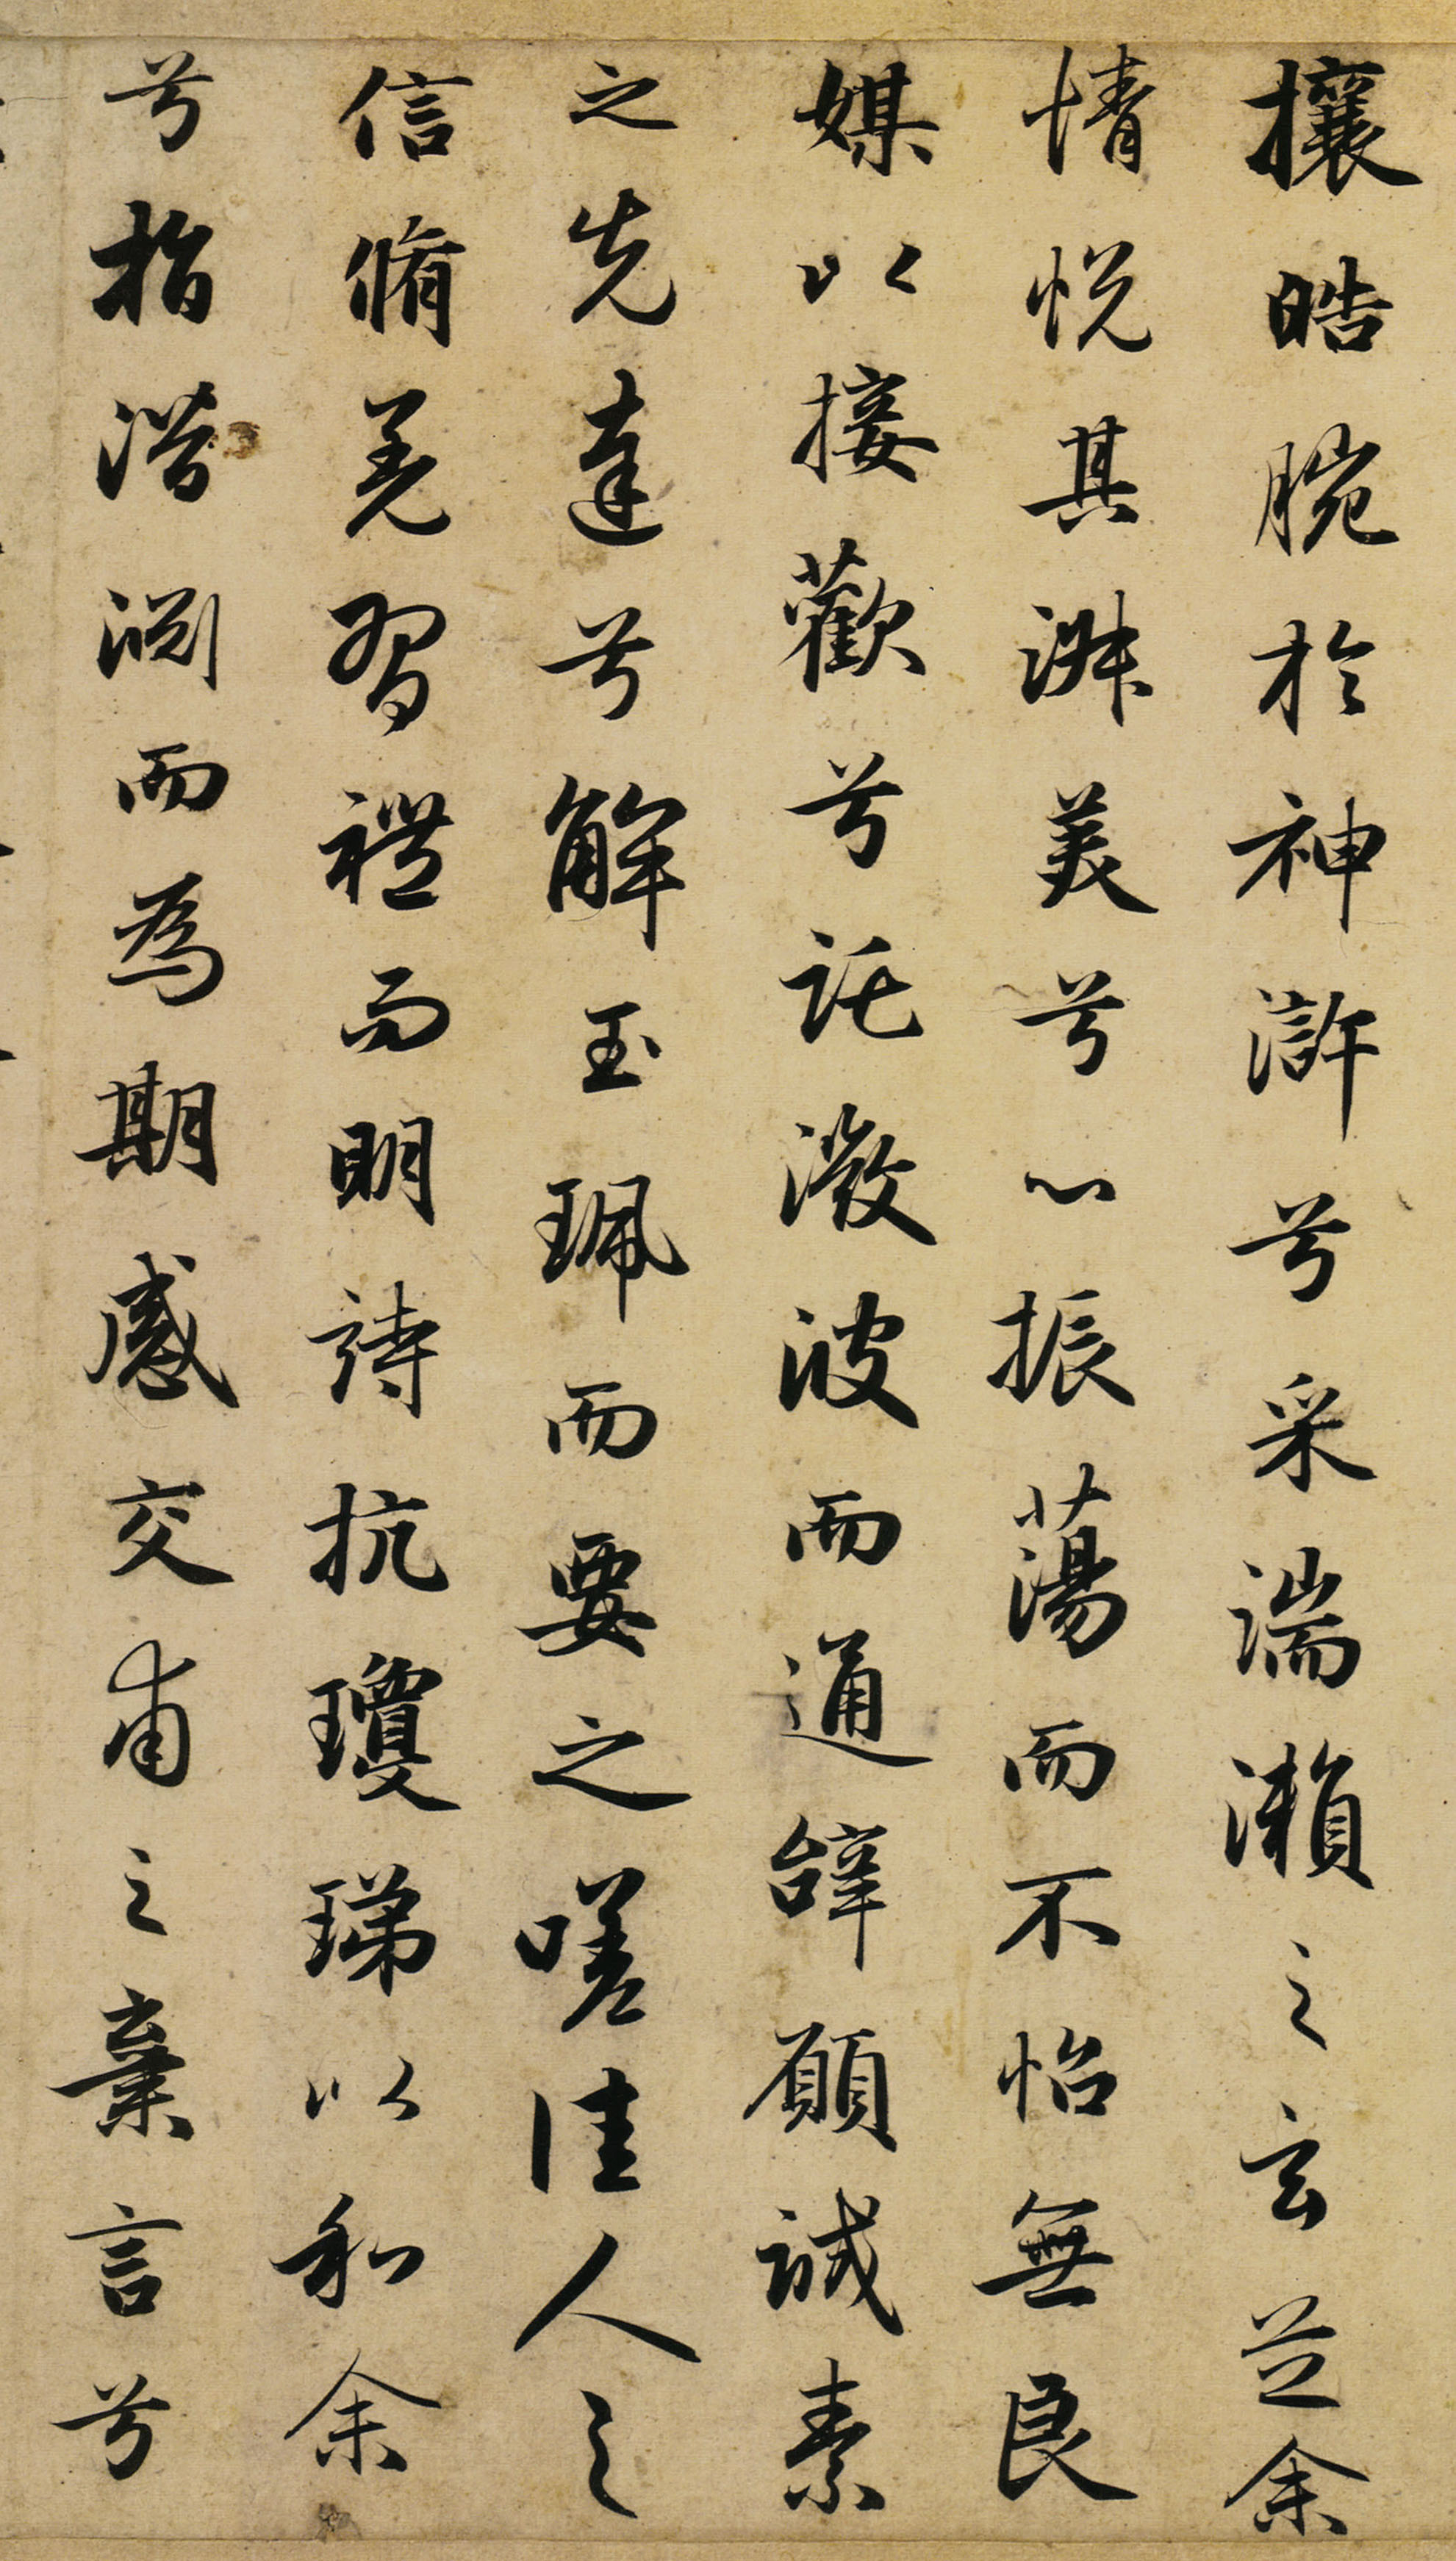 攘皓腕於神滸兮采湍瀨之玄芝余
情悅其淑美兮心振蕩而不怡無良
媒以接歡兮託微波而通辭願誠素
之先達兮解玉珮而要之嗟佳人之
信脩羌習禮而明詩抗瓊珶以和余
兮指潛淵而為期感交甫之棄言兮